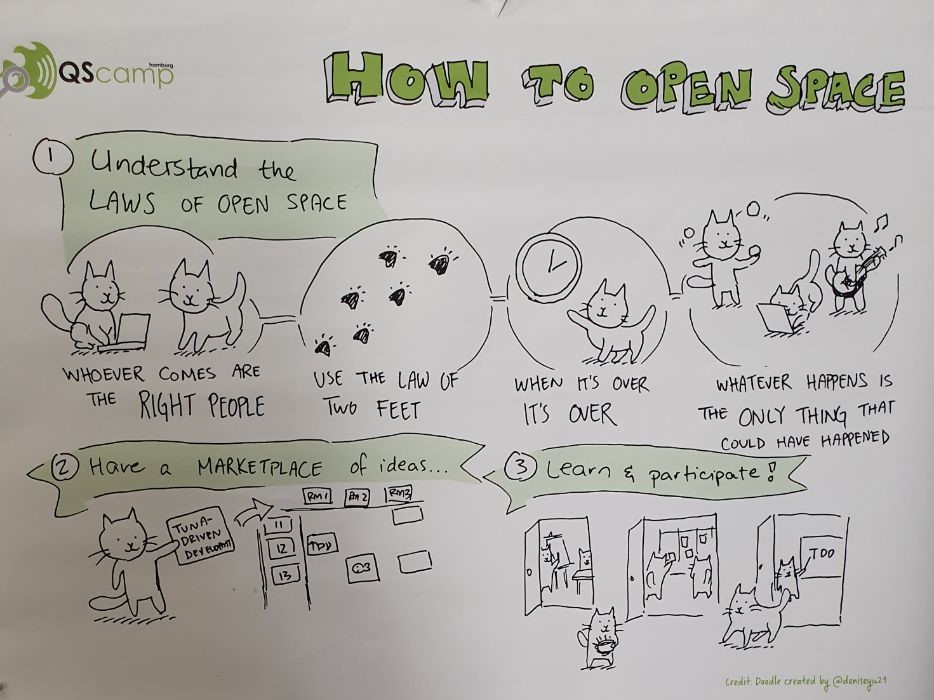 hamburg
QScamp
HOW TO OPEN SPACE
1 Understand the
LAWS OF OPEN SPACE
WHOEVER COMES ARE
THE RIGHT PEOPLE
USE THE LAW OF
TWO FEET
WHEN IT'S OVER
IT'S OVER
WHATEVER HAPPENS IS
THE ONLY THING THAT
COULD HAVE HAPPENED
2 Have a MARKETPLACE of ideas...
TUNA-
DRIVEN
DEVELOPMT
RM1 RM2 RM3
11
12 TDD
13
3 Learn & participate!
TDD
Credit: Doodle created by @deniseyu21